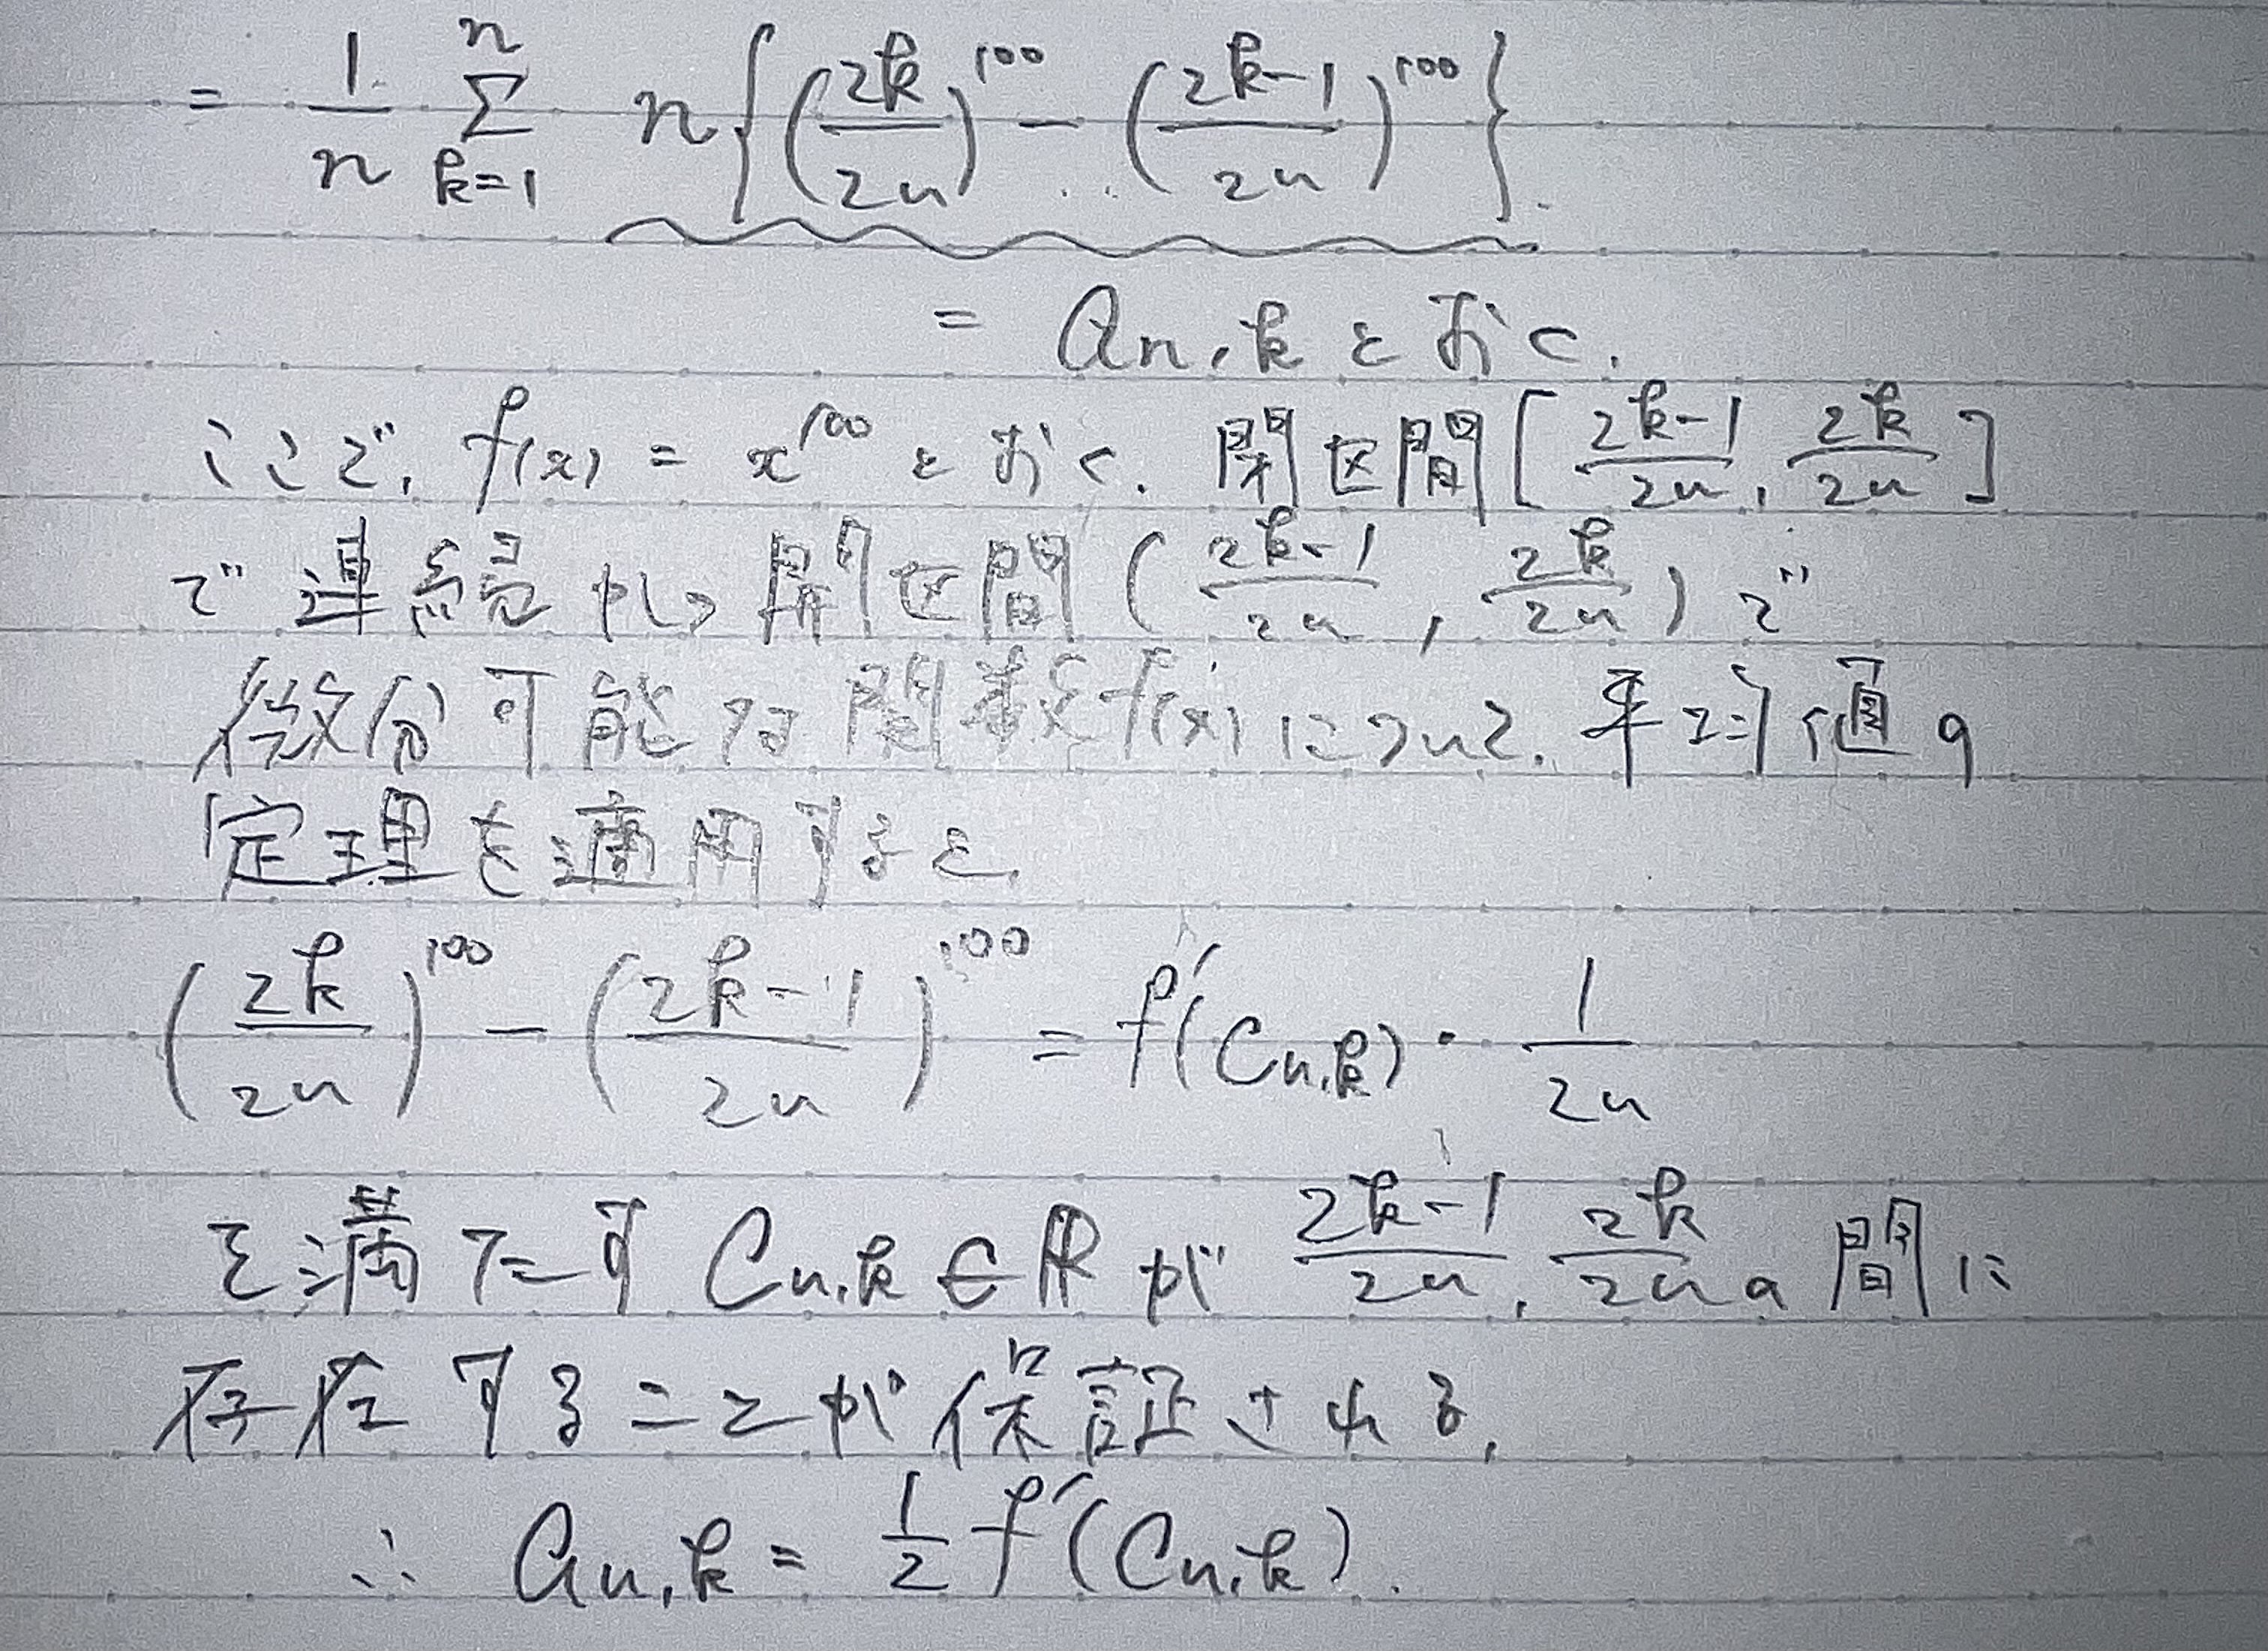 = 1/n Σ_{k=1}^{n} n{(2k/2n)^100 - (2k-1/2n)^100}
= a_{n,k} とおく.
ここで, f(x) = x^100 とおく. 閉区間 [2k-1/2n, 2k/2n]
で連続かつ開区間 (2k-1/2n, 2k/2n) で
微分可能な関数f(x)について, 平均値の
定理を適用すると,
(2k/2n)^100 - (2k-1/2n)^100 = f'(C_{n,k})・1/2n
を満たす C_{n,k} ∈ ℝ が 2k-1/2n, 2k/2n の間に
存在することが保証される,
∴ a_{n,k} = 1/2 f'(C_{n,k}).